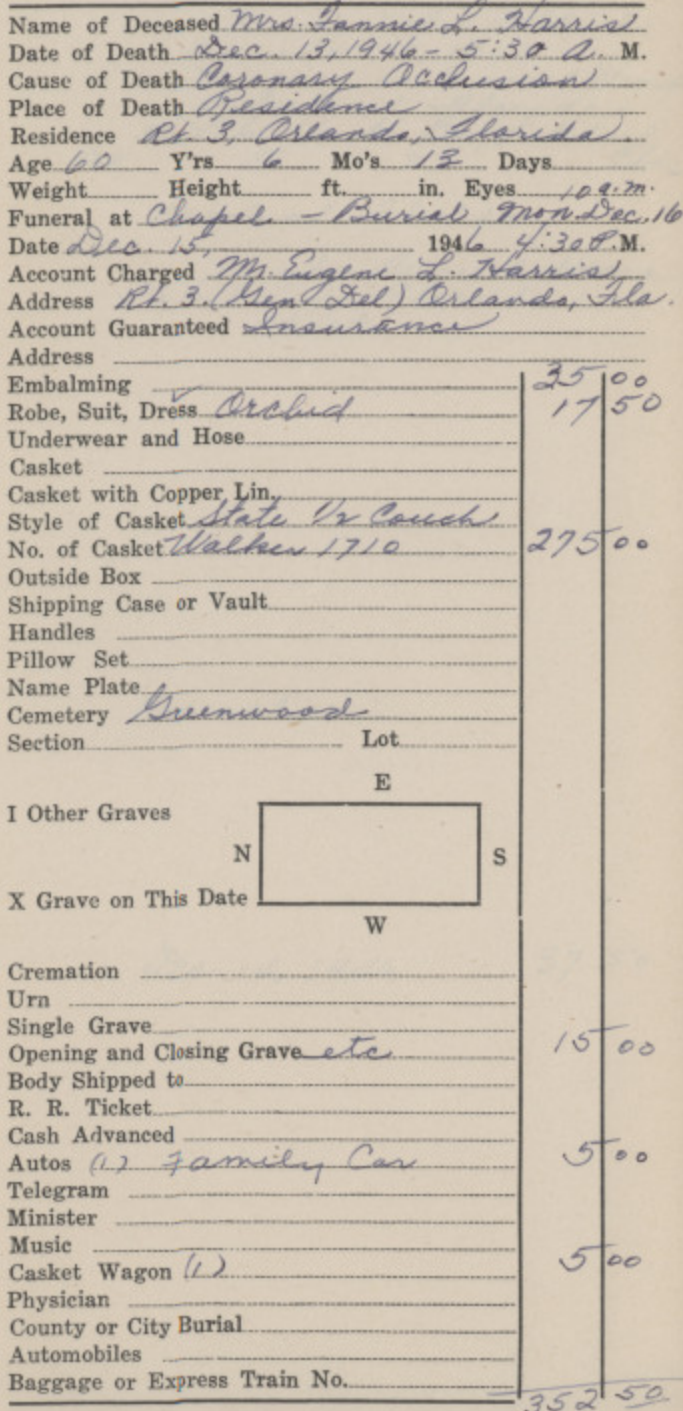 Name of Deceased Mrs. Fannie L. Harris
Date of Death Dec. 13, 1946 - 5:30 A. M.
Cause of Death Coronary Occlusion
Place of Death Residence
Residence Rt. 3, Orlando, Florida.
Age 60 Y'rs 6 Mo's 13 Days
Weight Height ft. in. Eyes 10 a.m.
Funeral at Chapel - Burial Mon. Dec. 16
Date Dec. 15, 1946 4:30 P. M.
Account Charged Mr. Eugene L. Harris
Address Rt. 3. (Gen Del) Orlando, Fla.
Account Guaranteed Insurance
Address
Embalming 35 00
Robe, Suit, Dress Orchid 17 50
Underwear and Hose
Casket
Casket with Copper Lin.
Style of Casket State 1/2 Couch
No. of Casket Walker 1710 275 00
Outside Box
Shipping Case or Vault
Handles
Pillow Set
Name Plate
Cemetery Greenwood
Section Lot
E
I Other Graves
N S
X Grave on This Date
W
Cremation
Urn
Single Grave
Opening and Closing Grave etc 15 00
Body Shipped to
R. R. Ticket
Cash Advanced
Autos (1) Family Car 5 00
Telegram
Minister
Music
Casket Wagon (1) 5 00
Physician
County or City Burial
Automobiles
Baggage or Express Train No.
352 50